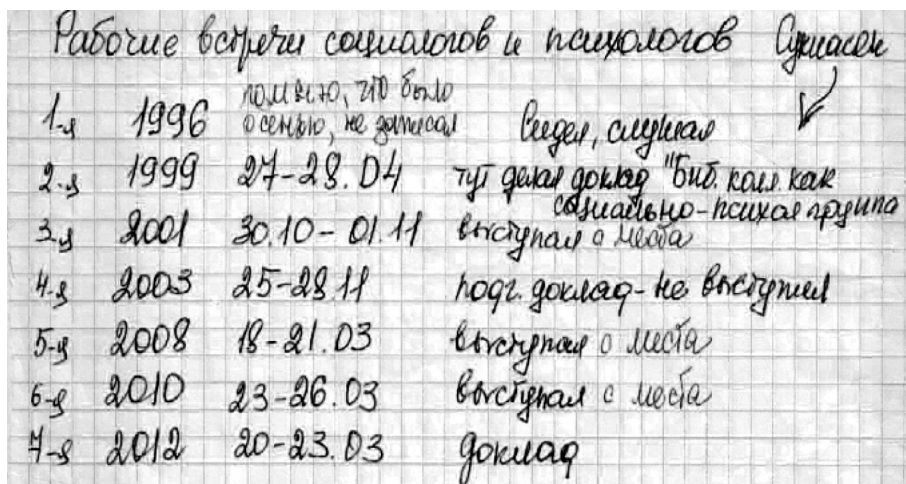 Рабочие встречи социологов и психологов Сукиасян
1-я 1996 помню, что было
осенью, не записал Сидел, слушал
2-я 1999 27-28.04 тут делал доклад "Биб. колл. как
социально-психол группа
3-я 2001 30.10-01.11 выступал с места
4-я 2003 25-28.11 подг. доклад-не выступил
5-я 2008 18-21.03 выступал с места
6-я 2010 23-26.03 выступал с места
7-я 2012 20-23.03 доклад